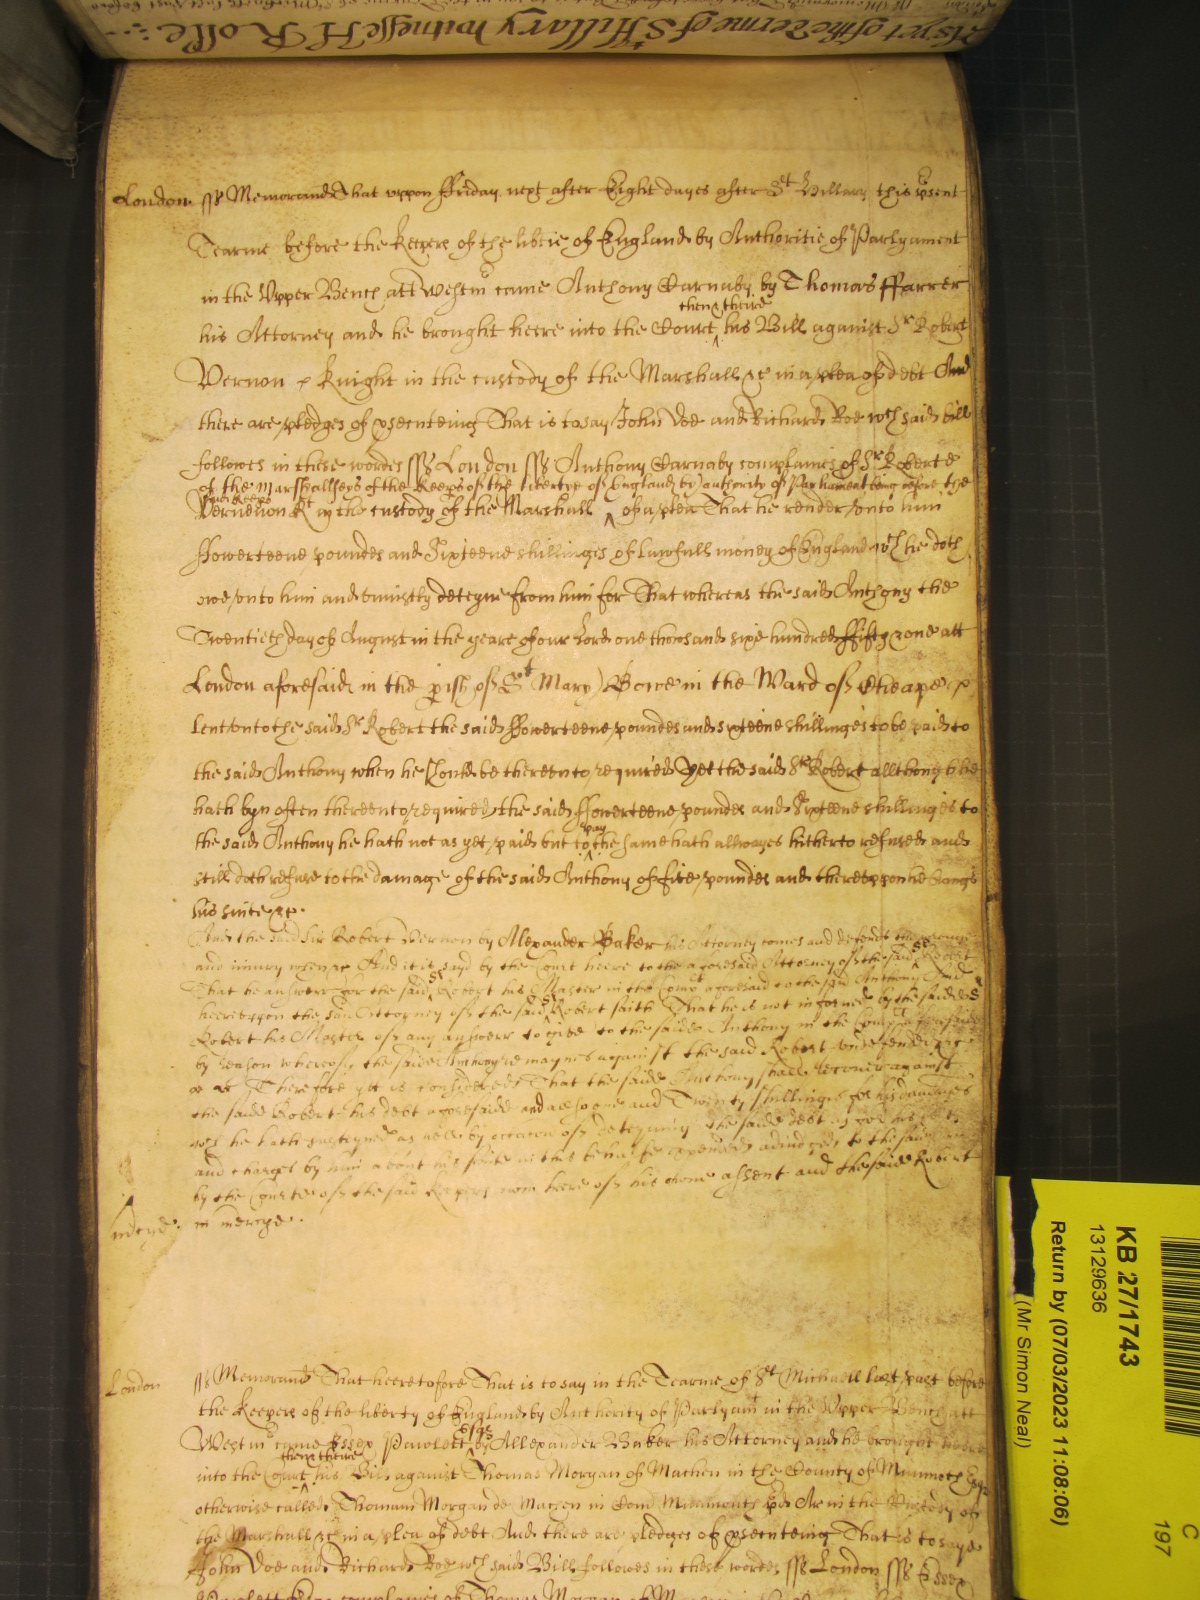 As yet of the Terme of St Hillary Witnesse H Rolle
London ss Memorand That uppon Friday next after Eight dayes after St Hillary this psent
Tearme before the Keepers of the libtie of England by Authoritie of Parlyament
in the Upper Bench att Westm came Anthony Carnaby by Thomas ffarrer
then & theire
his Attorney and he brought heere into the Court his Bill against Sr Robert
Vernon Knight in the custody of the Marshall &c in a plea of debt And
there are pledges of psecuteing That is to say John Doe and Richard Roe wch said bill
followes in these wordes ss London ss Anthony Carnaby complaines of Sr Roberte
of the Marshallseys of the Keeps of the libertye of England by authority of Parliament being before the
said Keeps
Vernon Kt in the custody of the Marshall of a plea That he render unto him
ffowerteene poundes and Sixteene shillinges of lawfull money of England wch he doth
owe unto him and uniustly deteyne from him for That whereas the said Anthony the
Twentieth day of August in the yeare of our Lord one thousand sixe hundred ffifty & one att
London aforesaid in the pish of St Mary Bowe in the Ward of Cheape
lent unto the said Sr Robert the said ffowerteene poundes and sixteene shillinges to be paid to
the said Anthony when he should be thereunto required Yet the said Sr Robert allthough he
hath byn often thereunto required the said ffowerteene poundes and Sixteene shillinges to
pay
the said Anthony he hath not as yet paid but to the same hath allwayes hitherto refused and
still doth refuse to the damage of the said Anthony of five poundes and thereuppon he brings
his suite &c.
And the said Sir Robert Vernon by Alexander Baker his Attorney comes and defends the
and iniury when &c And it is sayd by the Court heere to the aforesaid Attorney of the said Sr Robert
That he answere for the said Sr Robert his Master in the Court aforesaid to the said Anthony And
heereuppon the said Attorney of the said Sr Robert saith That he is not informed by the said Sr
Robert his Master of any answere to give to the saide Anthony in the
by reason whereof the saide Anthony remaynes against the said Robert undefended
Therefore yt is considered That the saide Anthony shall recover against
the saide Robert his debt aforesaide and allsoe one and Twenty shillinges for his damages
wch he hath susteyned as well by occasion of deteyning the saide debt as for his
and charges by him about his suite in this behalfe expended adiudged to the said
by the Courte of the said Keepers now here of his owne assent and the saide Robert
in mercye.
London ss Memorand That heeretofore That is to say in the Tearme of St Michaell last past before
the Keepers of the liberty of England by Authority of Parlyamt in the Upper Bench att
Esqr
Westm came Essex Pawlett by Allexander Baker his Attorney and he brought heere
then & theire
into the Court his Bill against Thomas Morgan of Machen in the County of Munmoth Esqr
otherwise called Thomam Morgan de Machen in Com in the Custody of
the Marshall &c in a plea of debt And there are pledges of psecuteing That is to saye
John Doe and Richard Roe wch said Bill followes in these wordes ss London ss Essex
Pawlett Esqr complaines of Thomas Morgan of
KB 27/1743
13129636
Return by (07/03/2023 11:08:06)
(Mr Simon Neal)
C
197